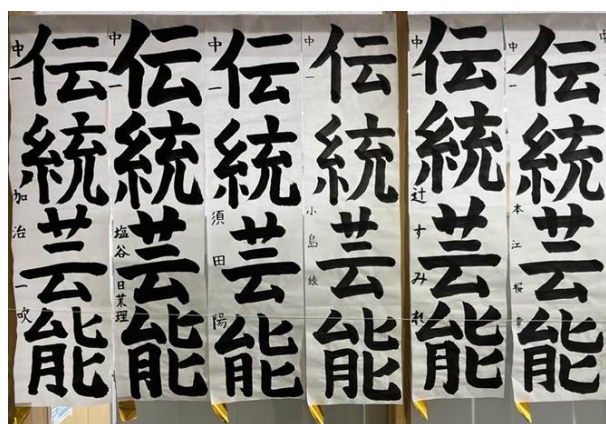 伝統芸能
中一 加治一吹
伝統芸能
中一 塩谷日茉理
伝統芸能
中一 須田陽
伝統芸能
中一 小島綾
伝統芸能
中一 辻すみれ
伝統芸能
中一 本江桜
中